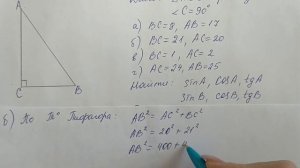 A
C
B
∠C=90°
а) BC=8, AB=17
б) BC=21, AC=20
в) BC=1, AC=2
г) AC=24, AB=25
Найти: sinA, cosA, tgA
sinB, cosB, tgB
б) По Тᵉ Пифагора: AB²=AC²+BC²
AB²=20²+21²
AB²=400+4